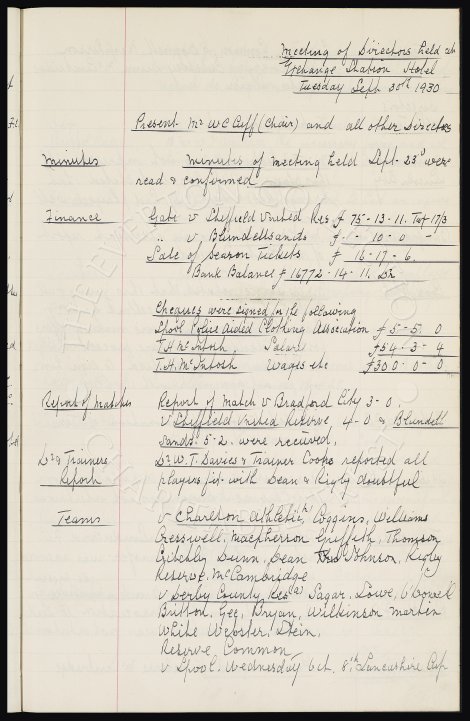 Meeting of Directors held at
Exchange Station Hotel
Tuesday Sept 30th 1930
Present Mr W C Cuff (Chair) and all other Directors
Minutes Minutes of meeting held Sept. 23d were
read & confirmed
Finance Gate v Sheffield United Res £ 75-13-11. Tax 17/3
" v Blundellsands £ 1-10-0 -
Sale of Season Tickets £ 16-17-6
Bank Balance £ 16772-14-11. Dr
Cheques were signed for the following
L'pool Police Aided Clothing Association £5-5-0
T. H. McIntosh Salary £54-3-4
T. H. McIntosh Wages etc £300-0-0
Report of Matches Report of Match v Bradford City 3-0,
v Sheffield United Reserve, 4-0 & Blundell
sands. 5-2. were received.
Dr & Trainers Dr W. T. Davies & Trainer Cooke reported all
Report players fit with Dean & Rigby doubtful
Teams v Charlton Athletic (h) Coggins, Williams
Cresswell, Macpherson Griffith, Thomson
Critchley Dunn, Dean Johnson, Rigby
Reserve, McCambridge
v Derby County Res (a) Sagar, Lowe, O'Donnell
Britton, Gee, Bryan, Wilkinson Martin
White Webster, Stein,
Reserve Common
v L'pool. Wednesday Oct. 8th Lancashire Cup